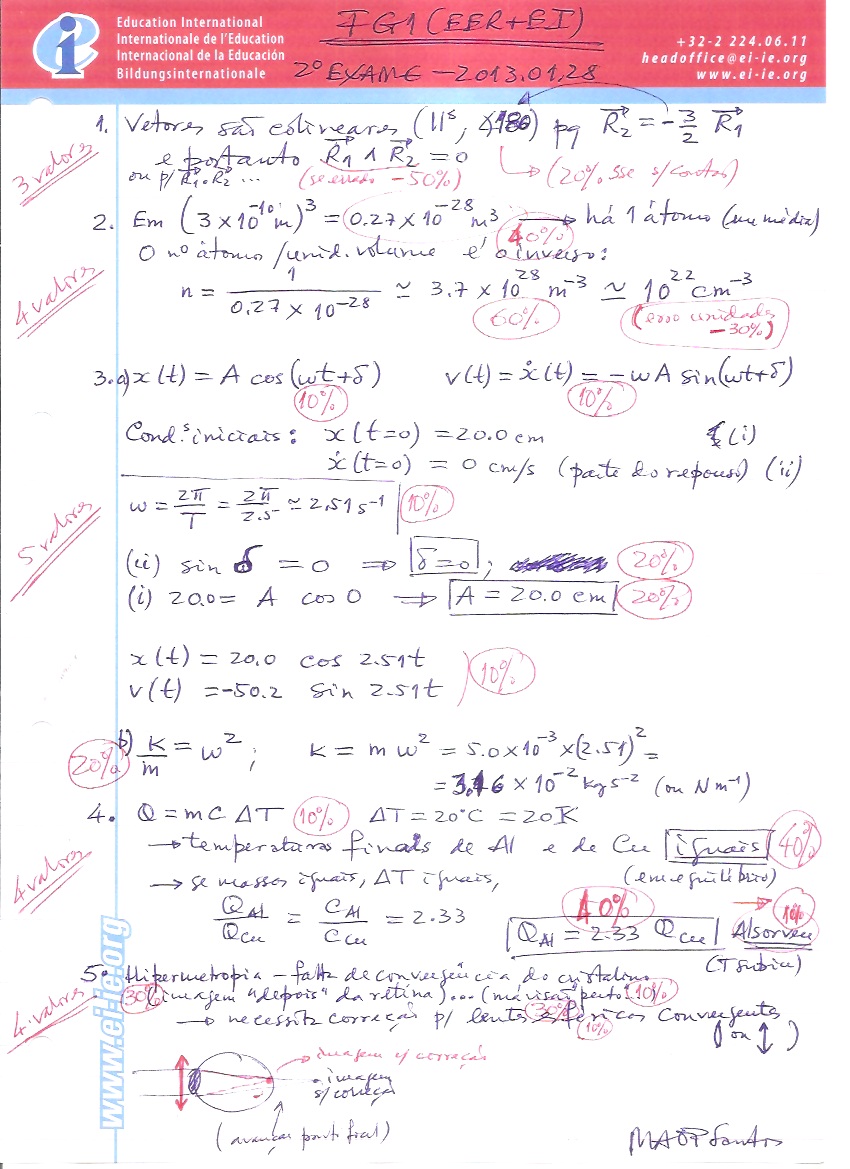 Education International
Internationale de l'Education
Internacional de la Educación
Bildungsinternationale
FG1 (EER+EI)
2º EXAME - 2013.01.28
+32-2 224.06.11
headoffice@ei-ie.org
www.ei-ie.org
1. Vetores são colineares (//s, ∡180) pq R₂ = -3/2 R₁
3 valores
e portanto R₁ ∧ R₂ = 0
ou p/ R₁.R₂ ... (se errado -50%) (20% sse s/contas)
2. Em (3 × 10⁻¹⁰ m)³ = 0.27 × 10⁻²⁸ m³ → há 1 átomo (em média)
40%
O nº átomo/unid. volume é o inverso:
4 valores
n = 1 / 0.27 × 10⁻²⁸ ≃ 3.7 × 10²⁸ m⁻³ ≃ 10²² cm⁻³
60% (erro unidades -30%)
3. a) x(t) = A cos(ωt+δ) v(t) = ẋ(t) = -ωA sin(ωt+δ)
10% 10%
Cond.s iniciais: x(t=0) = 20.0 cm (i)
ẋ(t=0) = 0 cm/s (parte do repouso) (ii)
5 valores
ω = 2π/T = 2π/2.5 ≃ 2.51 s⁻¹ 10%
(ii) sin δ = 0 ⇒ δ=0; 20%
(i) 20.0 = A cos 0 ⇒ A = 20.0 cm 20%
x(t) = 20.0 cos 2.51t
v(t) = -50.2 sin 2.51t 10%
20% b) K/m = ω²; K = mω² = 5.0×10⁻³×(2.51)² =
= 3.16 × 10⁻² kg s⁻² (ou N m⁻¹)
4. Q = mCΔT 10% ΔT = 20°C = 20K
→ temperaturas finais de Al e de Cu iguais 40%
(em equilíbrio)
4 valores
→ se massas iguais, ΔT iguais,
Q_Al/Q_Cu = C_Al/C_Cu = 2.33
40% 10%
Q_Al = 2.33 Q_Cu Absorveu
(T subiu)
5. Hipermetropia - falta de convergência do cristalino
4 valores
30% (imagem "depois" da retina)... (má visão "perto") 10%
→ necessita correção p/ lentes esféricas convergentes
30% 10%
(ou ↕)
imagem c/ correção
imagem
s/correção
(avançar ponto focal)
www.ei-ie.org
MAOP Santos